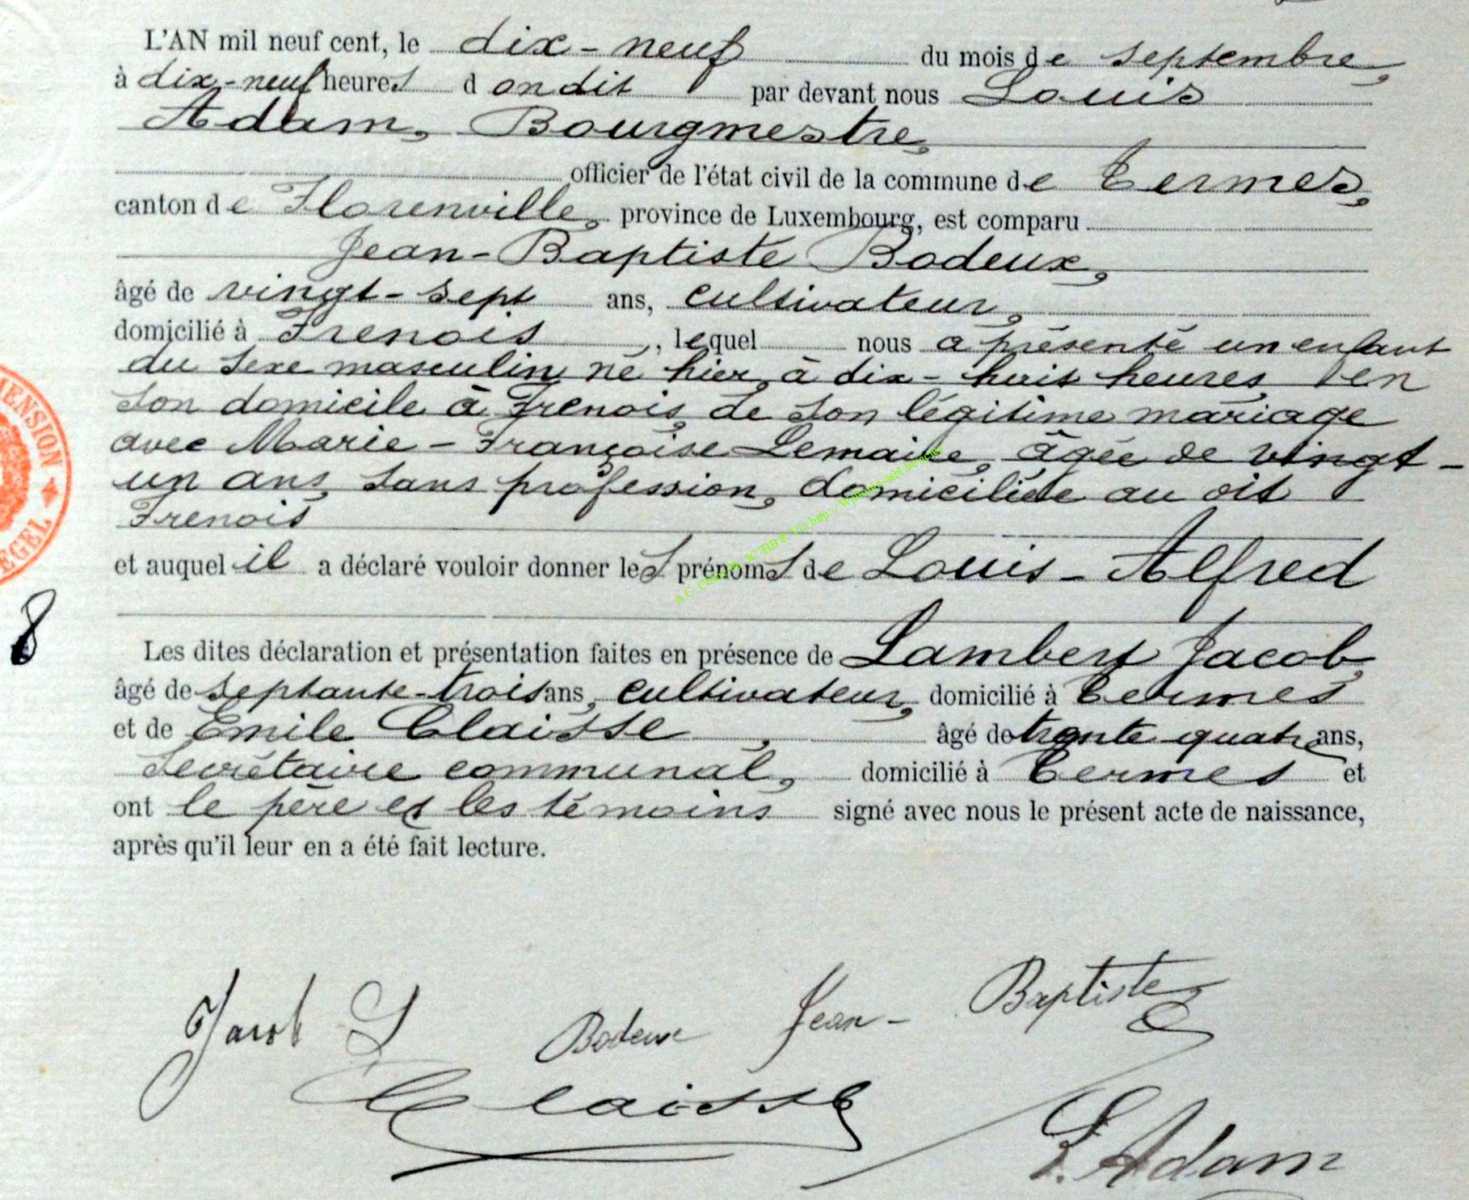 L'AN mil neuf cent, le dix-neuf du mois de septembre,
à dix-neuf heures d ondit par devant nous Louis
Adam, Bourgmestre,
officier de l'état civil de la commune de Termes,
canton de Florenville, province de Luxembourg, est comparu
Jean-Baptiste Bodeux,
âgé de vingt-sept ans, cultivateur,
domicilié à Frenois, lequel nous a présenté un enfant
du sexe masculin né hier, à dix-huit heures, en
son domicile à Frenois, de son légitime mariage
avec Marie-Françoise Lemaire, âgée de vingt-
un ans, sans profession, domiciliée au dit
Frenois
et auquel il a déclaré vouloir donner les prénoms de Louis-Alfred
8
Les dites déclaration et présentation faites en présence de Lambert Jacob,
âgé de septante-trois ans, cultivateur, domicilié à Termes
et de Emile Claisse, âgé de trente quatre ans,
Secrétaire communal, domicilié à Termes et
ont le père et les témoins signé avec nous le présent acte de naissance,
après qu'il leur en a été fait lecture.
Jacob L Bodeux Jean-Baptiste
Claisse
L. Adam
MENSION
EGEL